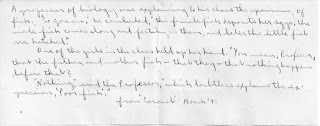 A professor of biology was explaining to his class the spawning of
fish. "So you see," he concluded, "the female fish deposits her eggs, the
male fish comes along and fertilizes them, and later the little fish
are hatched."
One of the girls in the class held up her hand. "You mean, Professor,
that the father and mother fish - that they - that nothing happens
before that?
"Nothing," said the Professor, "which doubtless explains the ex-
pression, 'Poor fish'."
from "Coronet" March '4